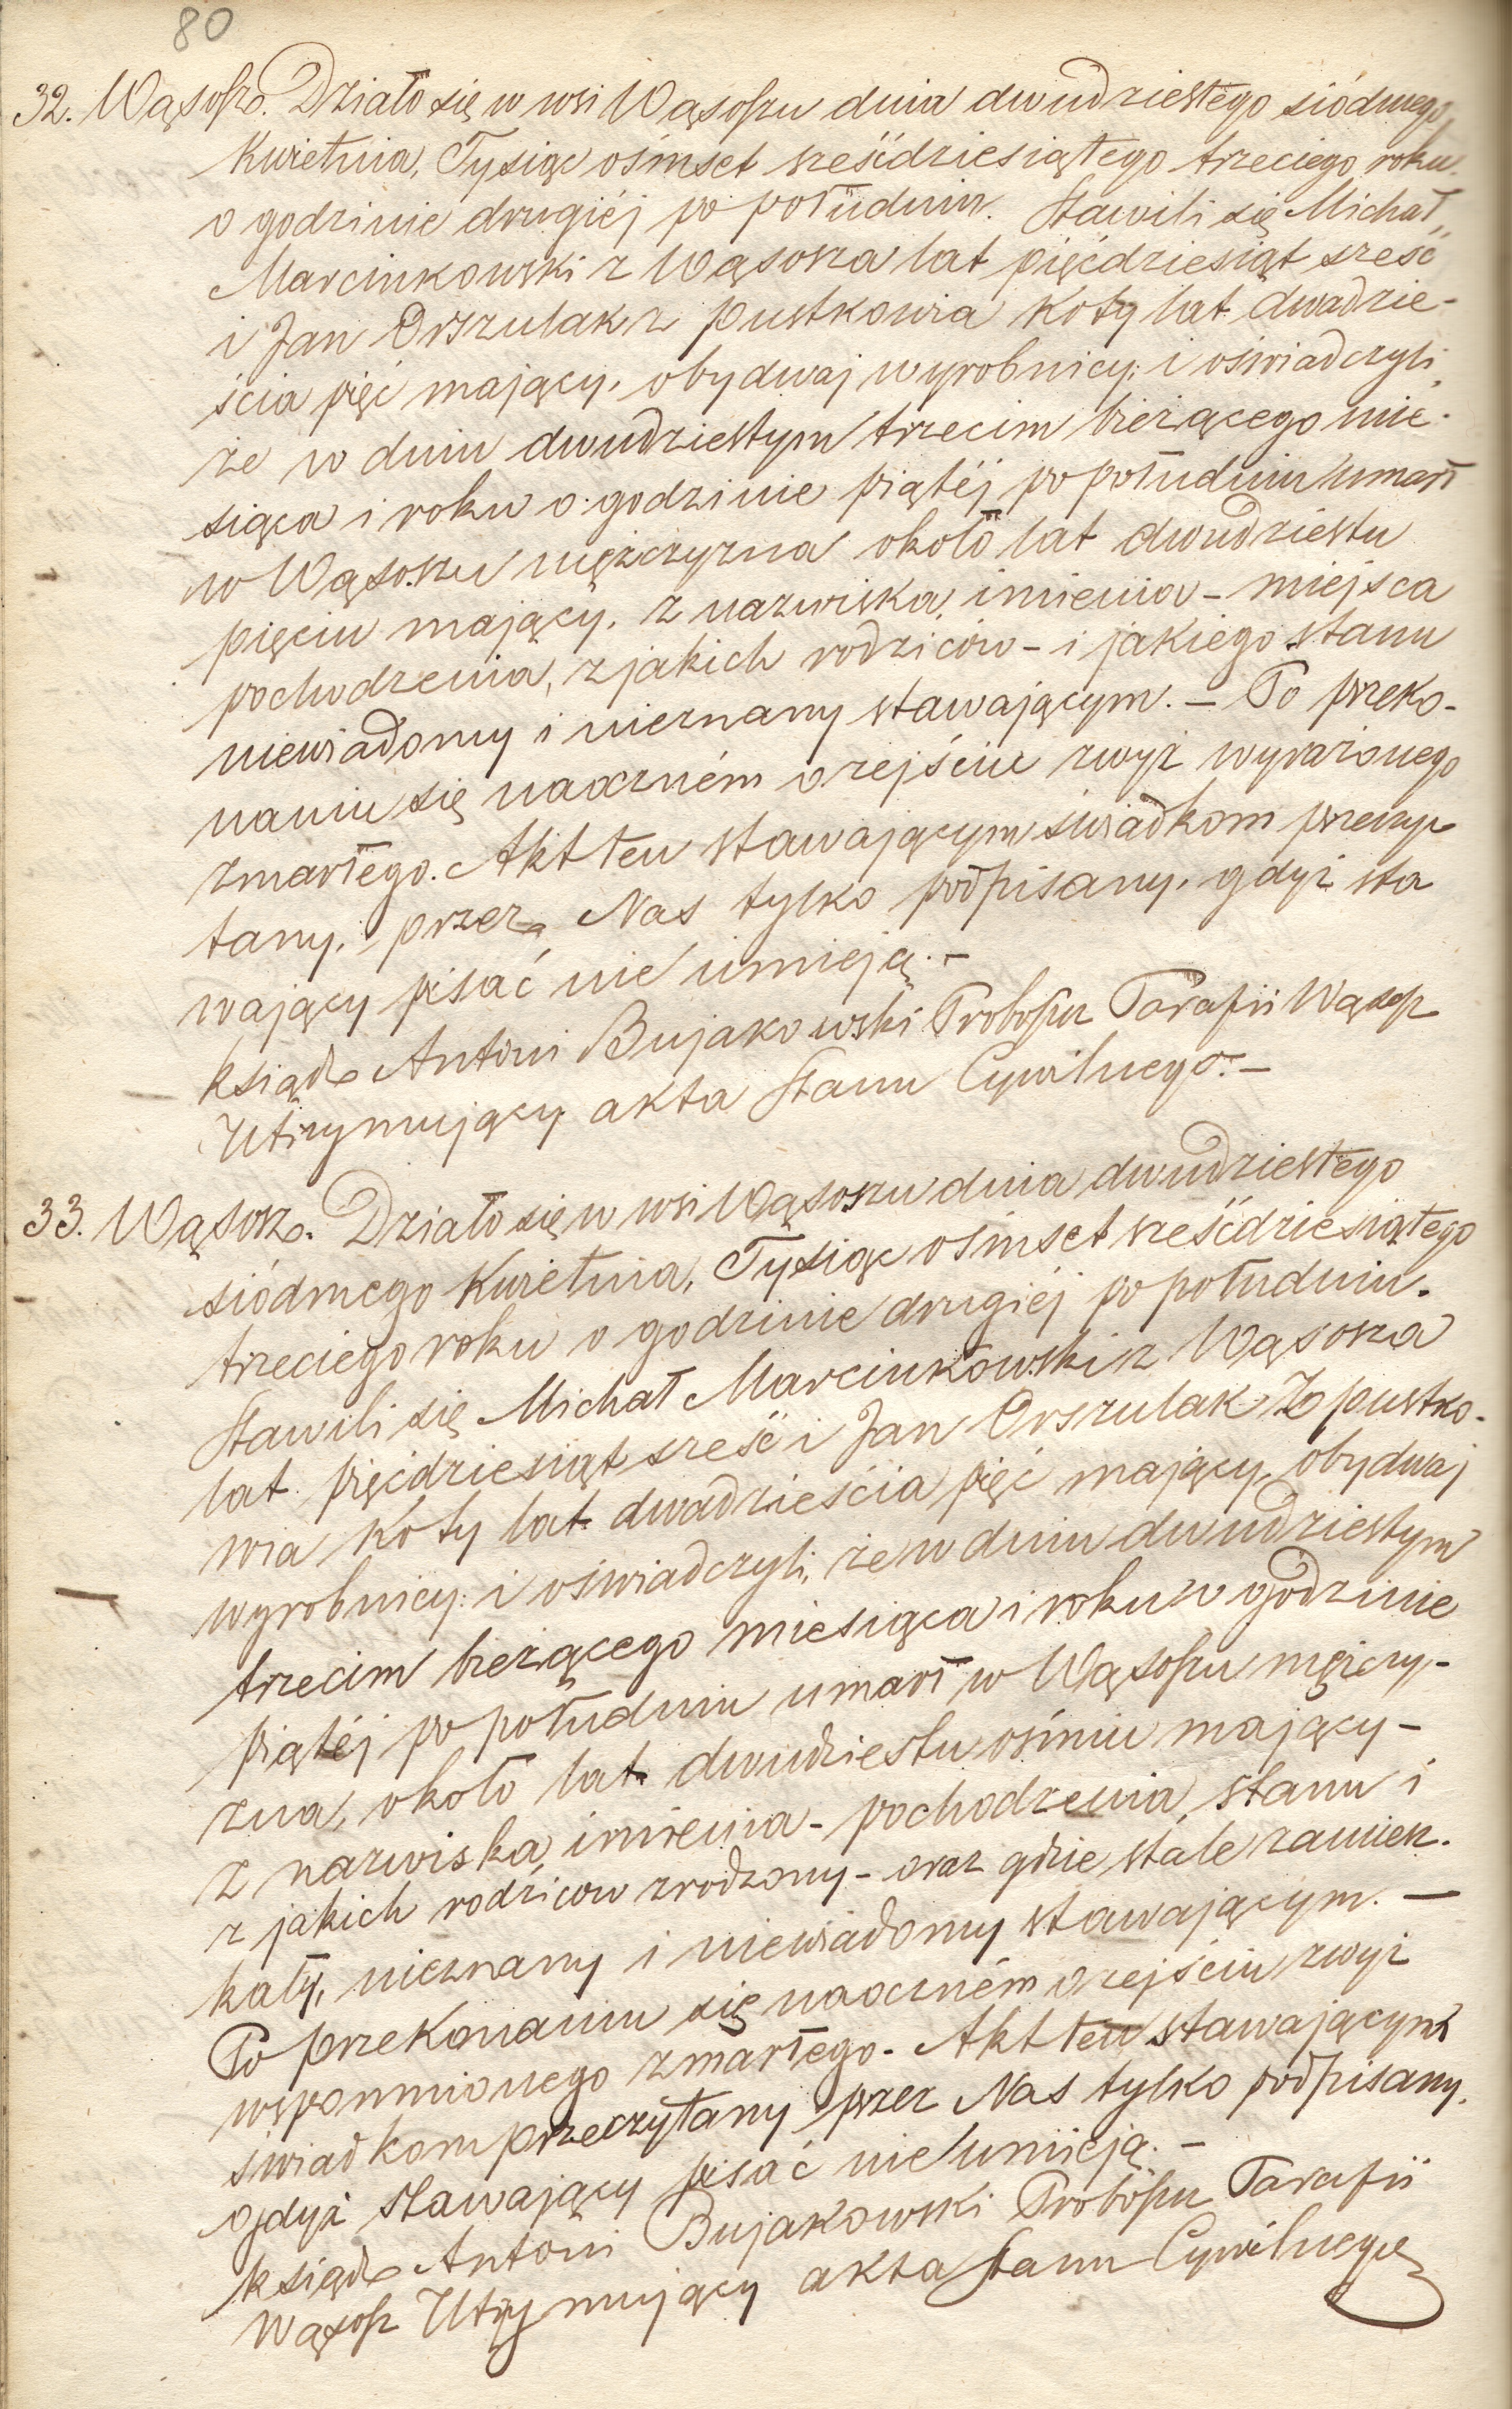 80
32. Wąsosz. Działo się w wsi Wąsoszu dnia dwudziestego siódmego
Kwietnia, Tysiąc ośmset sześćdziesiątego trzeciego roku
o godzinie drugiéj po południu. Stawili się Michał
Marcinkowski z Wąsosza lat pięćdziesiąt sześć
i Jan Orszulak z pustkowia Koty lat dwadzie-
ścia pięć mający, obydwaj wyrobnicy; i oświadczyli,
że w dniu dwudziestym trzecim bieżącego mie-
siąca i roku o godzinie piątéj po południu umarł
w Wąsoszu mężczyzna około lat dwudziestu
pięciu mający, z nazwiska, imienia - miejsca
pochodzenia, z jakich rodziców - i jakiego stanu
niewiadomy i nieznany stawającym. - Po przeko-
naniu się naoczném o zejściu zwyż wyrażonego
zmarłego. Akt ten stawającym świadkom przeczy
tany, przez Nas tylko podpisany, gdyż sta
wający pisać nie umieją. -
Ksiądz Antoni Bujakowski Proboszcz Parafii Wąsosz
Utrzymujący akta Stanu Cywilnego. -
33. Wąsosz. Działo się w wsi Wąsoszu dnia dwudziestego
siódmego Kwietnia, Tysiąc ośmset sześćdziesiątego
trzeciego roku o godzinie drugiéj po południu.
Stawili się Michał Marcinkowski z Wąsosza
lat pięćdziesiąt sześć i Jan Orszulak z pustko-
wia Koty lat dwadzieścia pięć mający, obydwaj
wyrobnicy: i oświadczyli, że w dniu dwudziestym
trzecim bieżącego miesiąca i roku o godzinie
piątéj po południu umarł w Wąsoszu mężczy-
zna, około lat dwudziestu ośmiu mający -
z nazwiska, imienia - pochodzenia, stanu i
z jakich rodziców zrodzony - oraz gdzie stale zamiesz.
kały, nieznany i niewiadomy stawającym. -
Po przekonaniu się naoczném o zejściu zwyż
wspomnionego zmarłego. Akt ten stawającym
świadkom przeczytany przez Nas tylko podpisany,
gdyż stawający pisać nie umieją. -
Ksiądz Antoni Bujakowski Proboszcz Parafii
Wąsosz Utrzymujący akta Stanu Cywilnego